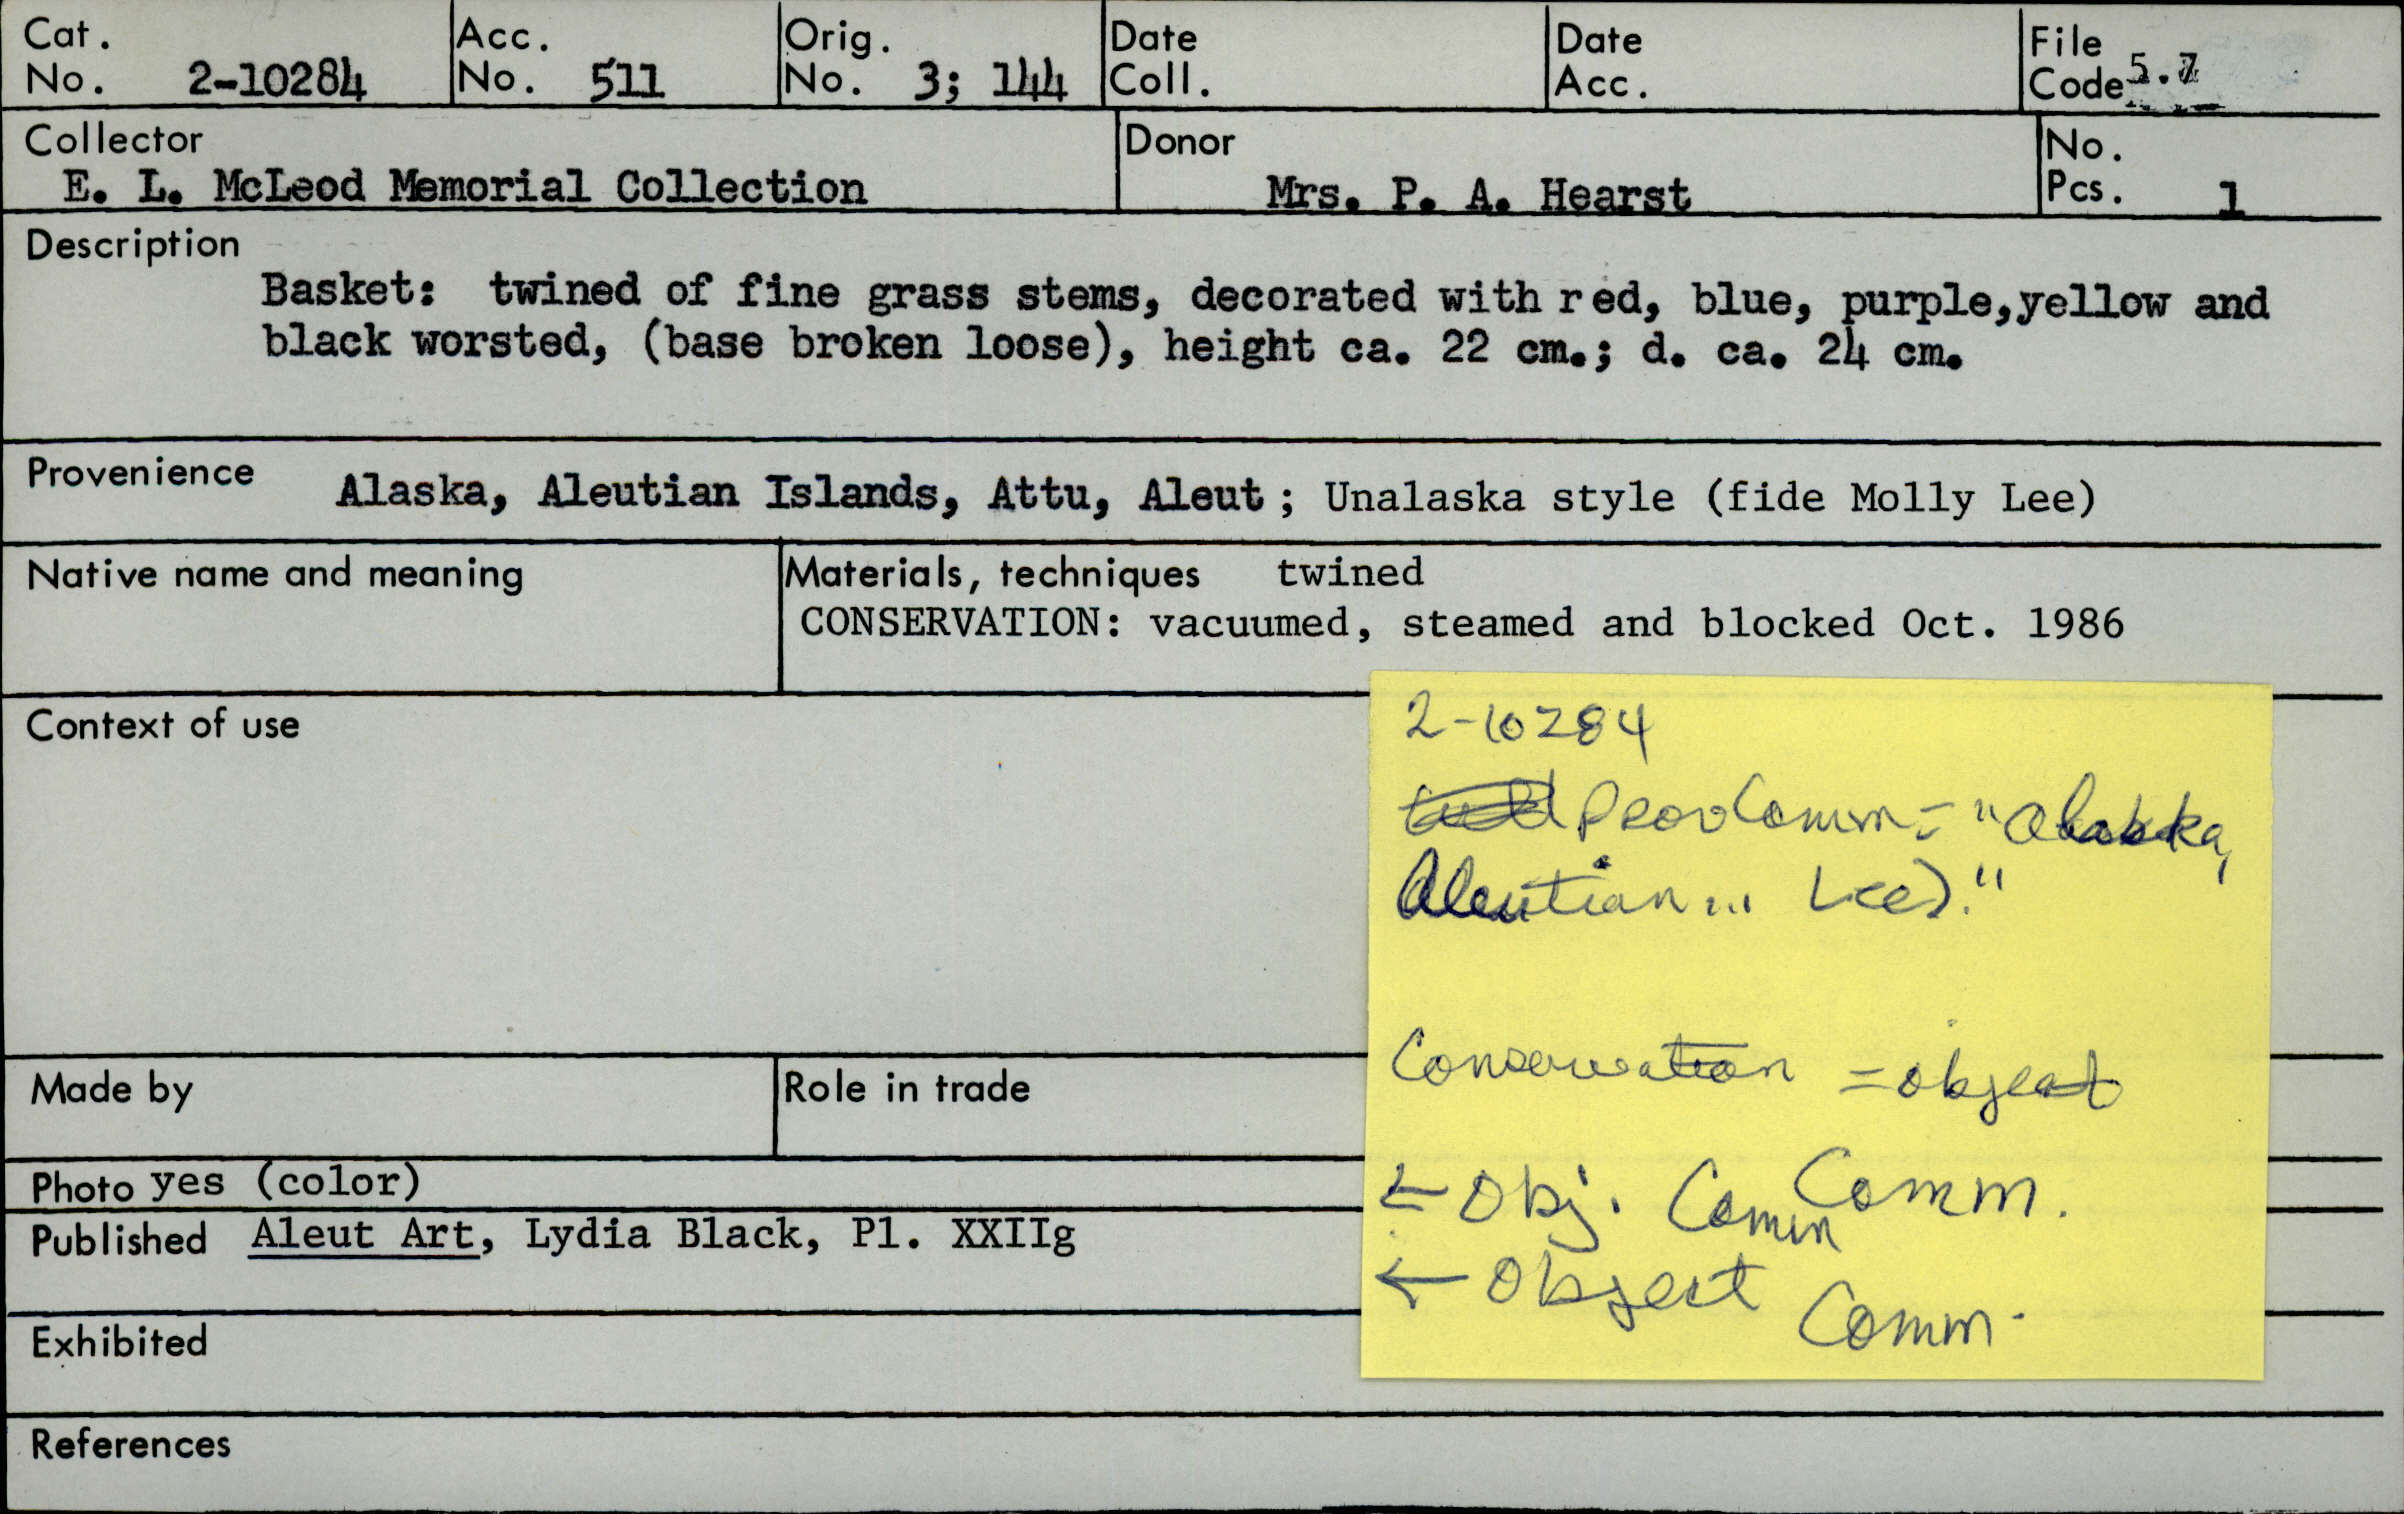 Cat. No. 2-10284
Acc. No. 511
Orig. No. 3; 144
Date Coll.
Date Acc.
File Code
Collector
E. L. McLeod Memorial Collection
Donor
Mrs. P. A. Hearst
No. Pcs. 1
Description
Basket: twined of fine grass stems, decorated with red, blue, purple,yellow and
black worsted, (base broken loose), height ca. 22 cm.; d. ca. 24 cm.
Provenience Alaska, Aleutian Islands, Attu, Aleut; Unalaska style (fide Molly Lee)
Native name and meaning
Materials, techniques twined
CONSERVATION: vacuumed, steamed and blocked Oct. 1986
Context of use
Made by
Role in trade
Photo yes (color)
Published Aleut Art, Lydia Black, Pl. XXIIg
Exhibited
References
2-10284
Prov Comm = "Alaska,
Aleutian ... Lee)."
Conservation = object
Comm.
← Obj. Comm
← Object
Comm.